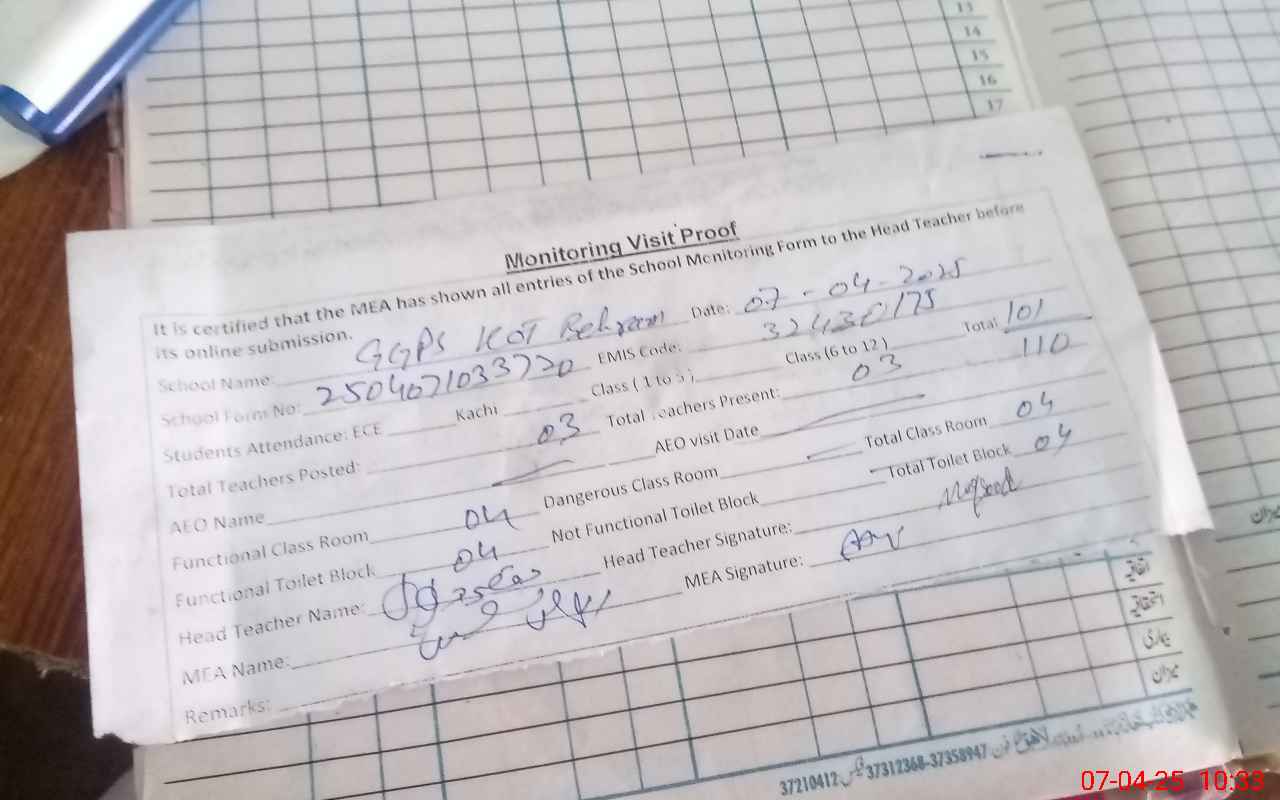 13
14
15
16
17
Monitoring Visit Proof
It is certified that the MEA has shown all entries of the School Monitoring Form to the Head Teacher before
its online submission.
School Name: GGPS KOT Behram Date: 07-04-2025
School Form No: 2504071033720 EMIS Code: 32430175
Students Attendance: ECE Kachi Class ( 1 to 5 ) Class (6 to 12 ) Total 101
110
Total Teachers Posted: 03 Total Teachers Present: 03
AEO Name AEO visit Date
Functional Class Room 04 Dangerous Class Room Total Class Room 04
Functional Toilet Block 04 Not Functional Toilet Block Total Toilet Block 04
Head Teacher Name: Head Teacher Signature:
MEA Name: MEA Signature:
Remarks:
میزان
37210412 فیکس 37312368-37358947 فون
07-04-25 10:33